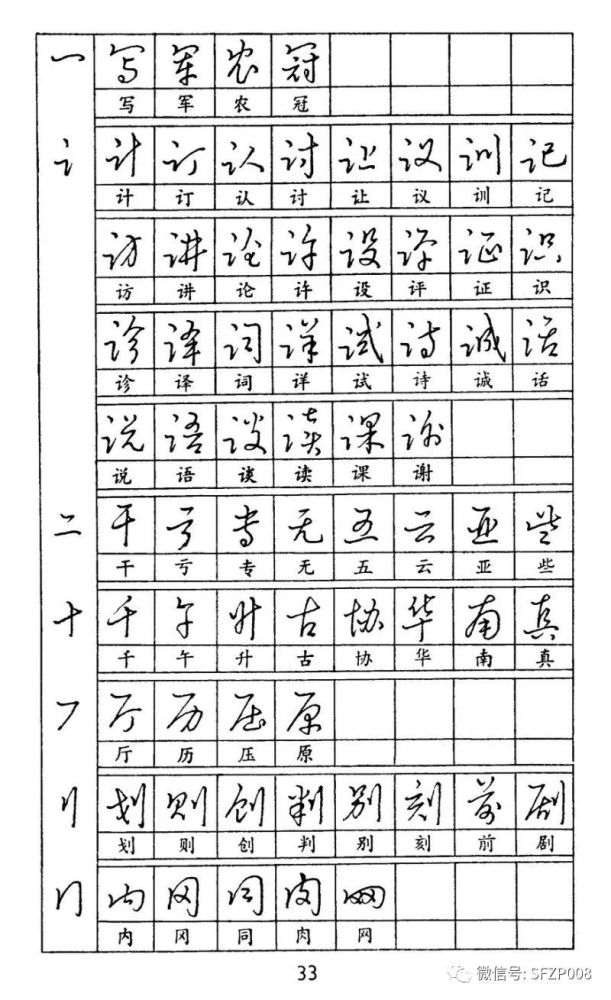 冖 写 军 农 冠
写 军 农 冠
讠 计 订 认 讨 让 议 训 记
计 订 认 讨 让 议 训 记
访 讲 论 许 设 评 证 识
访 讲 论 许 设 评 证 识
诊 译 词 详 试 诗 诚 话
诊 译 词 详 试 诗 诚 话
说 语 谈 读 课 谢
说 语 谈 读 课 谢
二 干 亏 专 无 五 云 亚 些
干 亏 专 无 五 云 亚 些
十 千 午 升 古 协 华 南 真
千 午 升 古 协 华 南 真
厂 厅 历 压 原
厅 历 压 原
刂 划 则 创 判 别 刻 前 剧
划 则 创 判 别 刻 前 剧
冂 内 冈 同 肉 网
内 冈 同 肉 网
33
微信号: SFZP008